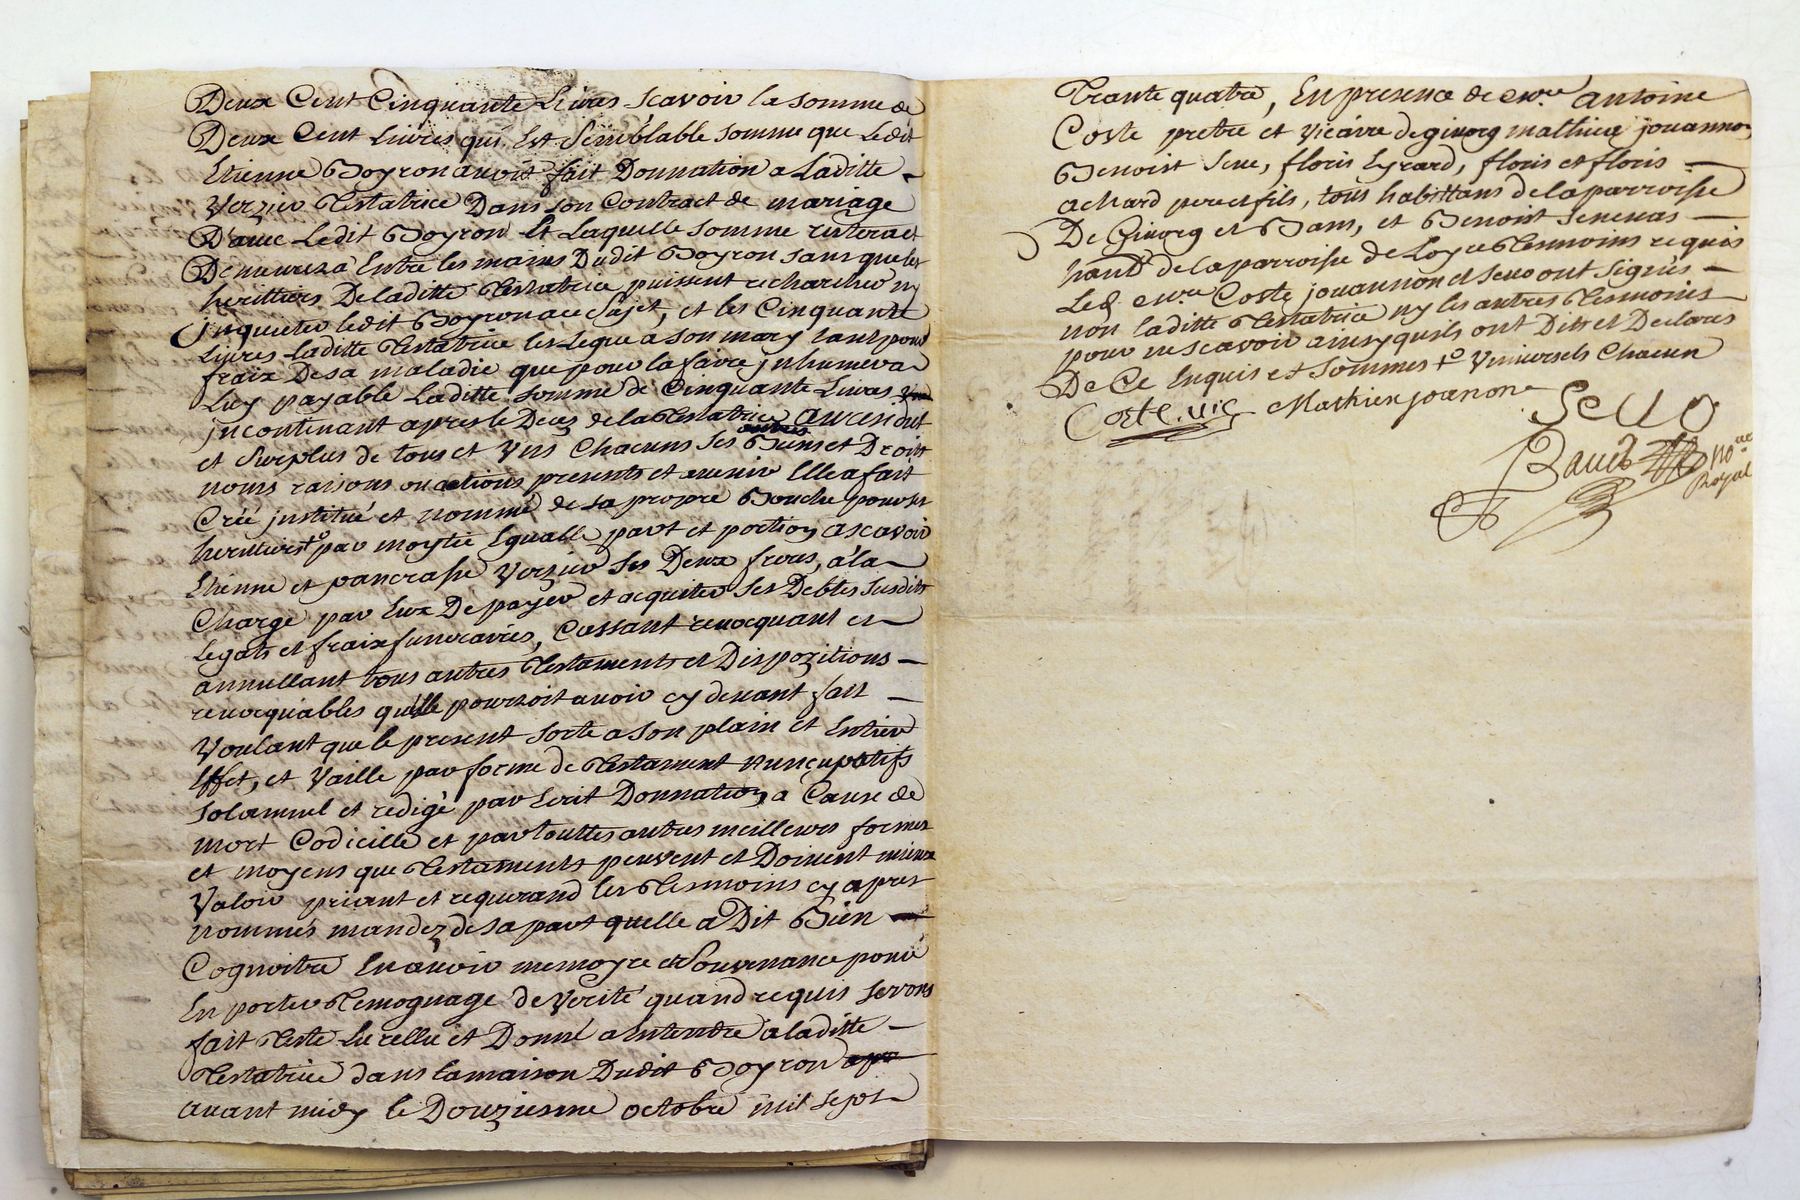 Deux Cent Cinquante Livres Scavoir la somme de
Deux Cent Livres qui Est Semblable somme que Ledit
Etienne Boyron avoit fait Donnation a Laditte
Verzier Testatrice Dans son Contract de mariage
D'avec Ledit Boyron Et Laquelle somme restera et
Demeurera Entre les mains Dudit Boyron sans que les
heritiers De laditte Testatrice puissent rechercher ny
jnquieter ledit Boyron a ce Sujet, et les Cinquante
Livres laditte Testatrice les Legue a son mary tant pour
fraix De sa maladie que pour la faire jnhumer a
Luy payable Laditte somme de Cinquante Livres
jncontinant apres le Deces de la Testatrice
et Surplus de tous et Uns Chacuns ses autres Biens et Droits
noms raisons ou actions presents et avenir Elle a fait
Créé jnstitué et nommé de sa propre Bouche pour ses
heritiers + par moytié Egualle part et portion ascavoir
Etienne et pancrasse Verzier ses Deux freres, a la
Charge par Eux De payer et acquiter ses Debtes susdits
Legats et fraix funeraires, Cassant revocquant et
annullant tous autres Testaments et Dispozitions
revocquables qu'elle pourroit avoir cy devant fait
Voulant que le present sorte a son plain et Entier
Effet, et Vaille par forme de Testament nuncupatifs
solamnel et redigé par Ecrit Donnation a Cause de
mort Codicille et par touttes autres meilleures formes
et moyens que Testaments peuvent et Doivent mieux
Valoir priant et requerand les Tesmoins cy apres
nommés mandez de sa part quelle a Dit Bien
Cognoitre En avoir memoyre et Souvenance pour
En porter Temognage de Verité quand requis seront
fait Testé Lu rellu et Donné a entendre a laditte
Testatrice dans la maison Dudit Boyron
avant midy le Douziesme octobre mil sept
Trante quatre, En presence de mre antoine
Coste pretre et vicaire de givorg mathieu jouannon
Benoist Seve, floris Eyrard, floris et floris
achard pere et fils, tous habittans de la parroisse
De Givorg et Bans, et Benoist Senevas
hant de la parroisse de Loyre Tesmoins requis
Led mre Coste jouannon et Seve ont Signés
non laditte Testatrice ny les autres Tesmoins
pour ne scavoir ainsy quils ont Dit et Declarés
De Ce Enquis et Sommes + Universels Chacun
Coste vic Mathieu joanon
Seve
no.re
Royal